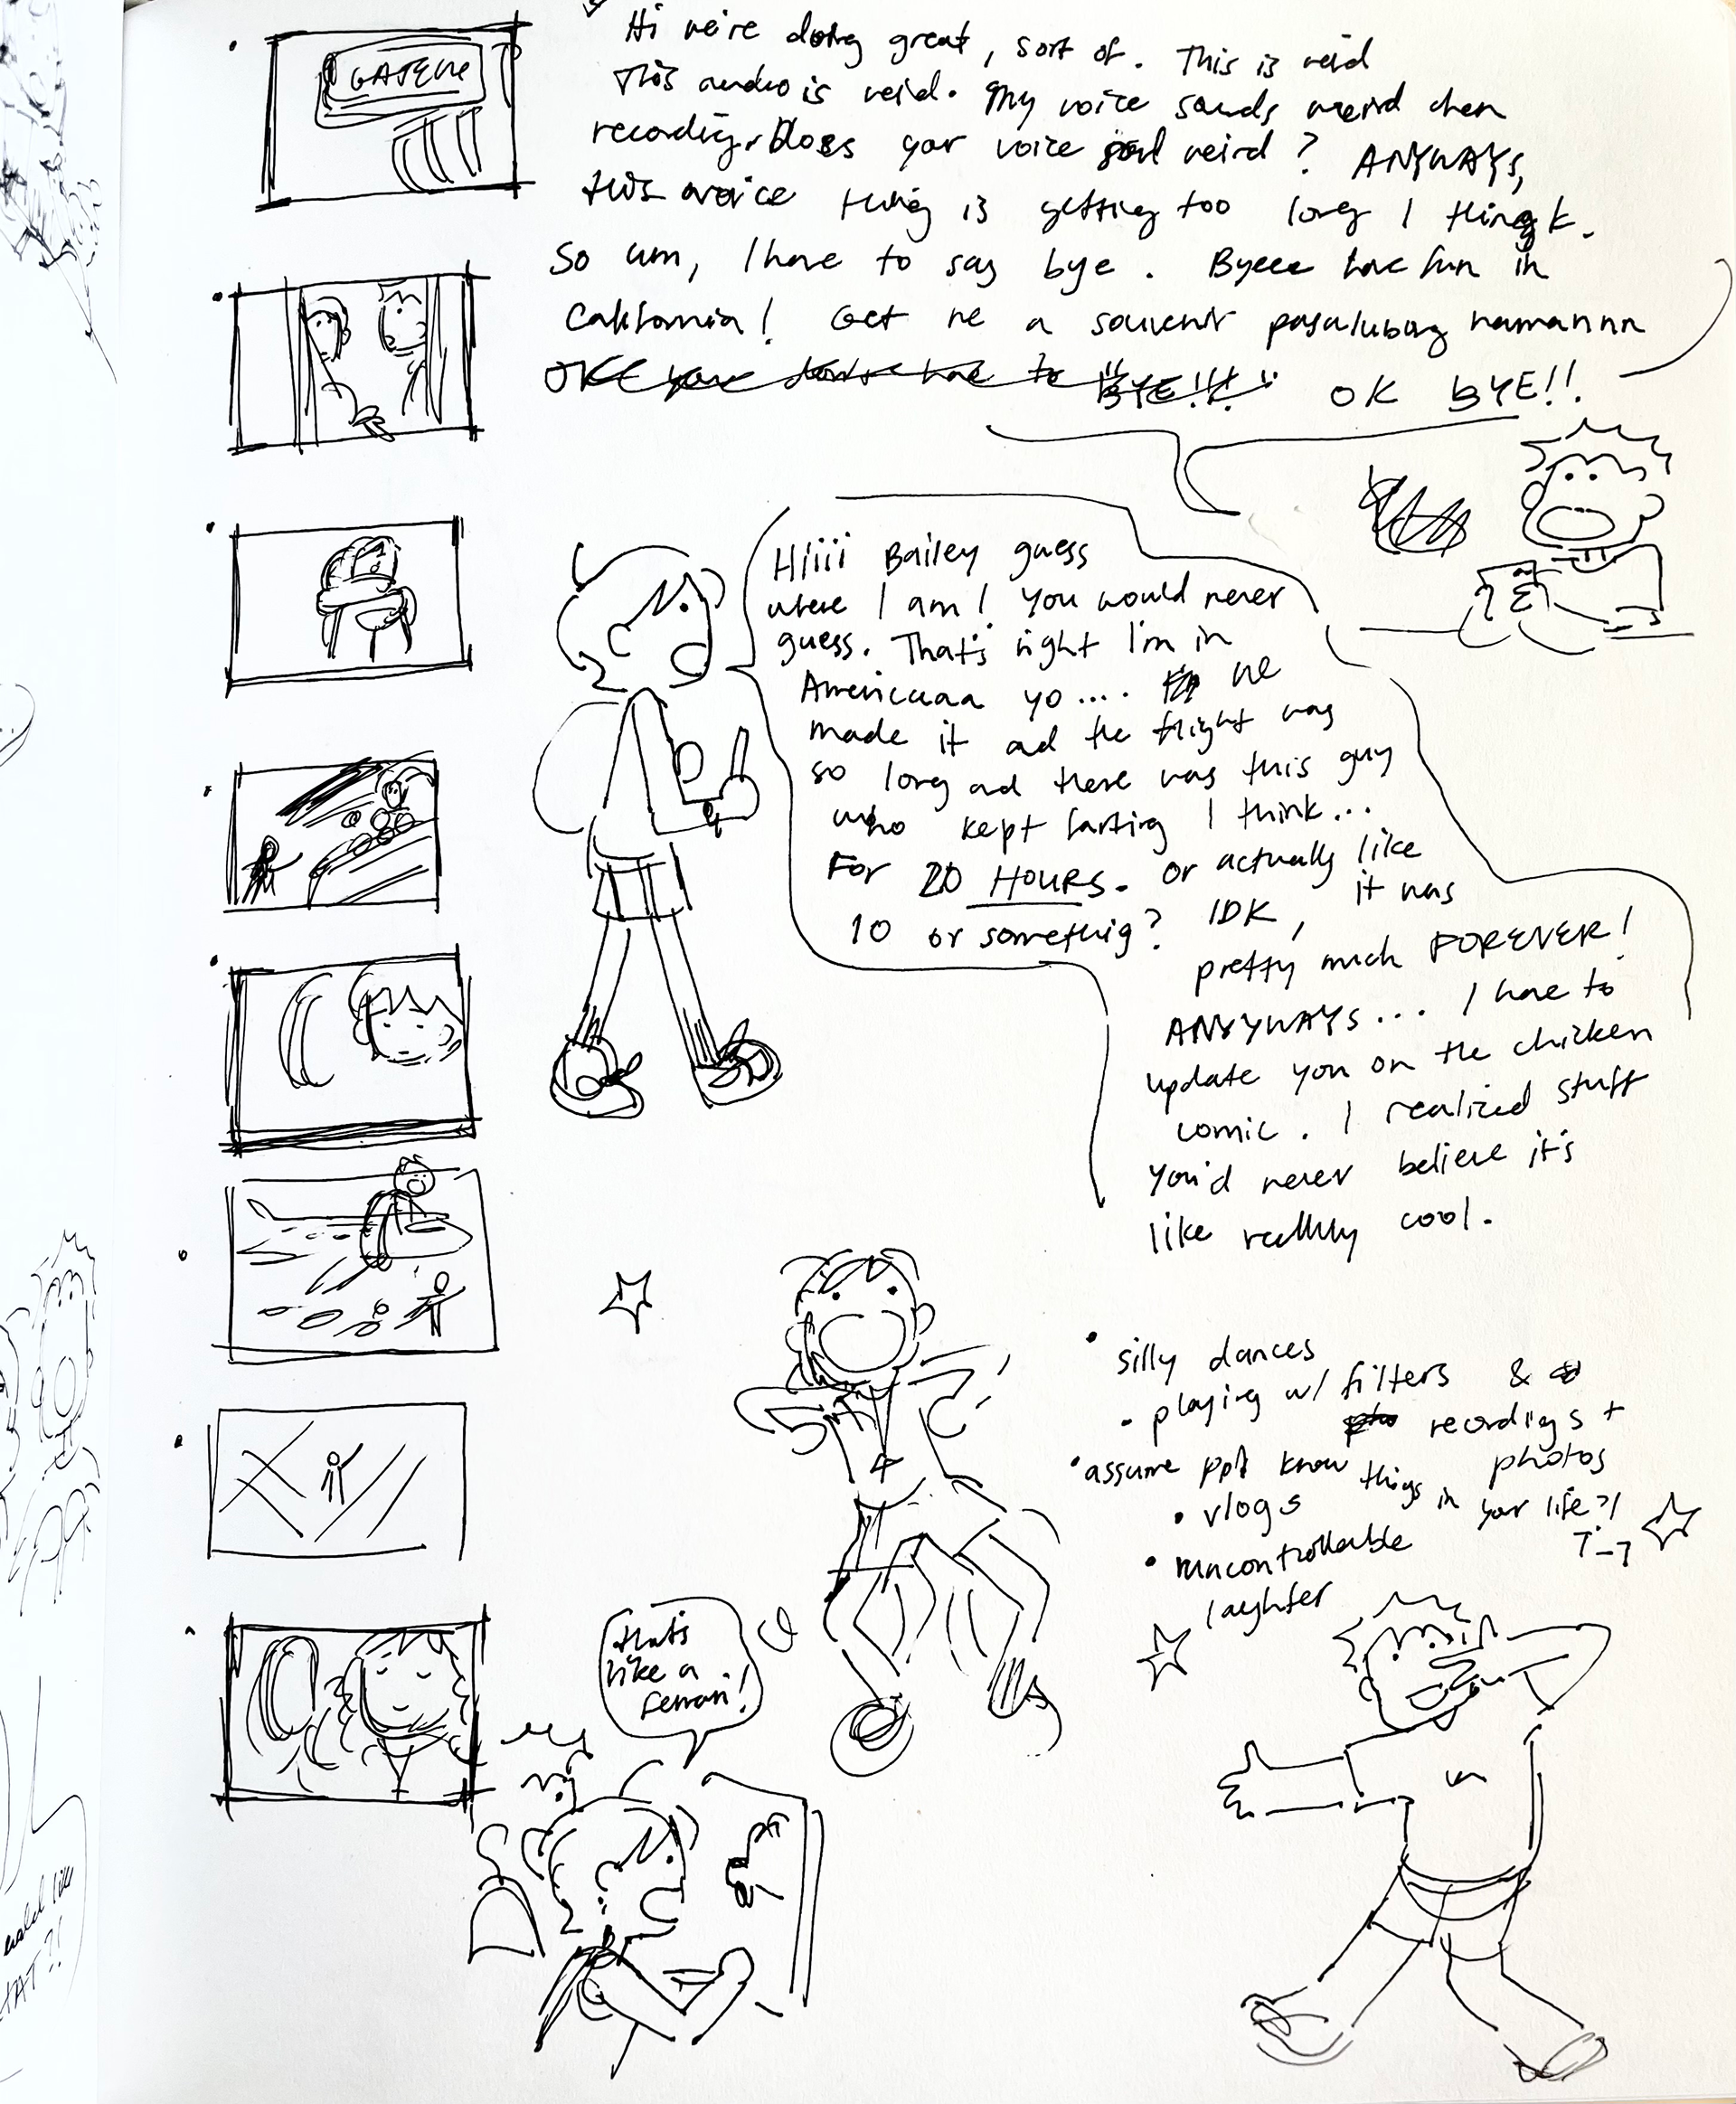 Hi we're doing great, sort of. This is weird
This audio is weird. My voice sounds weird when
recording. Does your voice weird? ANYWAYS,
this voice thing is getting too long I think.
So um, I have to say bye. Byeee have fun in
California! Get me a souvenir pasalubong namannn
OKE you don't have to BYE!!! OK BYE!!
Hiiii Bailey guess
where I am! You would never
guess. That's right I'm in
Americaaa yo.... we
made it and the flight was
so long and there was this guy
who kept farting I think...
For 20 HOURS. Or actually like
10 or something? IDK, it was
pretty much FOREVER!
ANYWAYS... I have to
update you on the chicken
comic. I realized stuff
you'd never believe it's
like really cool.
• silly dances
• playing w/ filters &
recordings +
photos
• assume ppl know things in your life?!
T_T
• vlogs
• uncontrollable
laughter
that's
like a